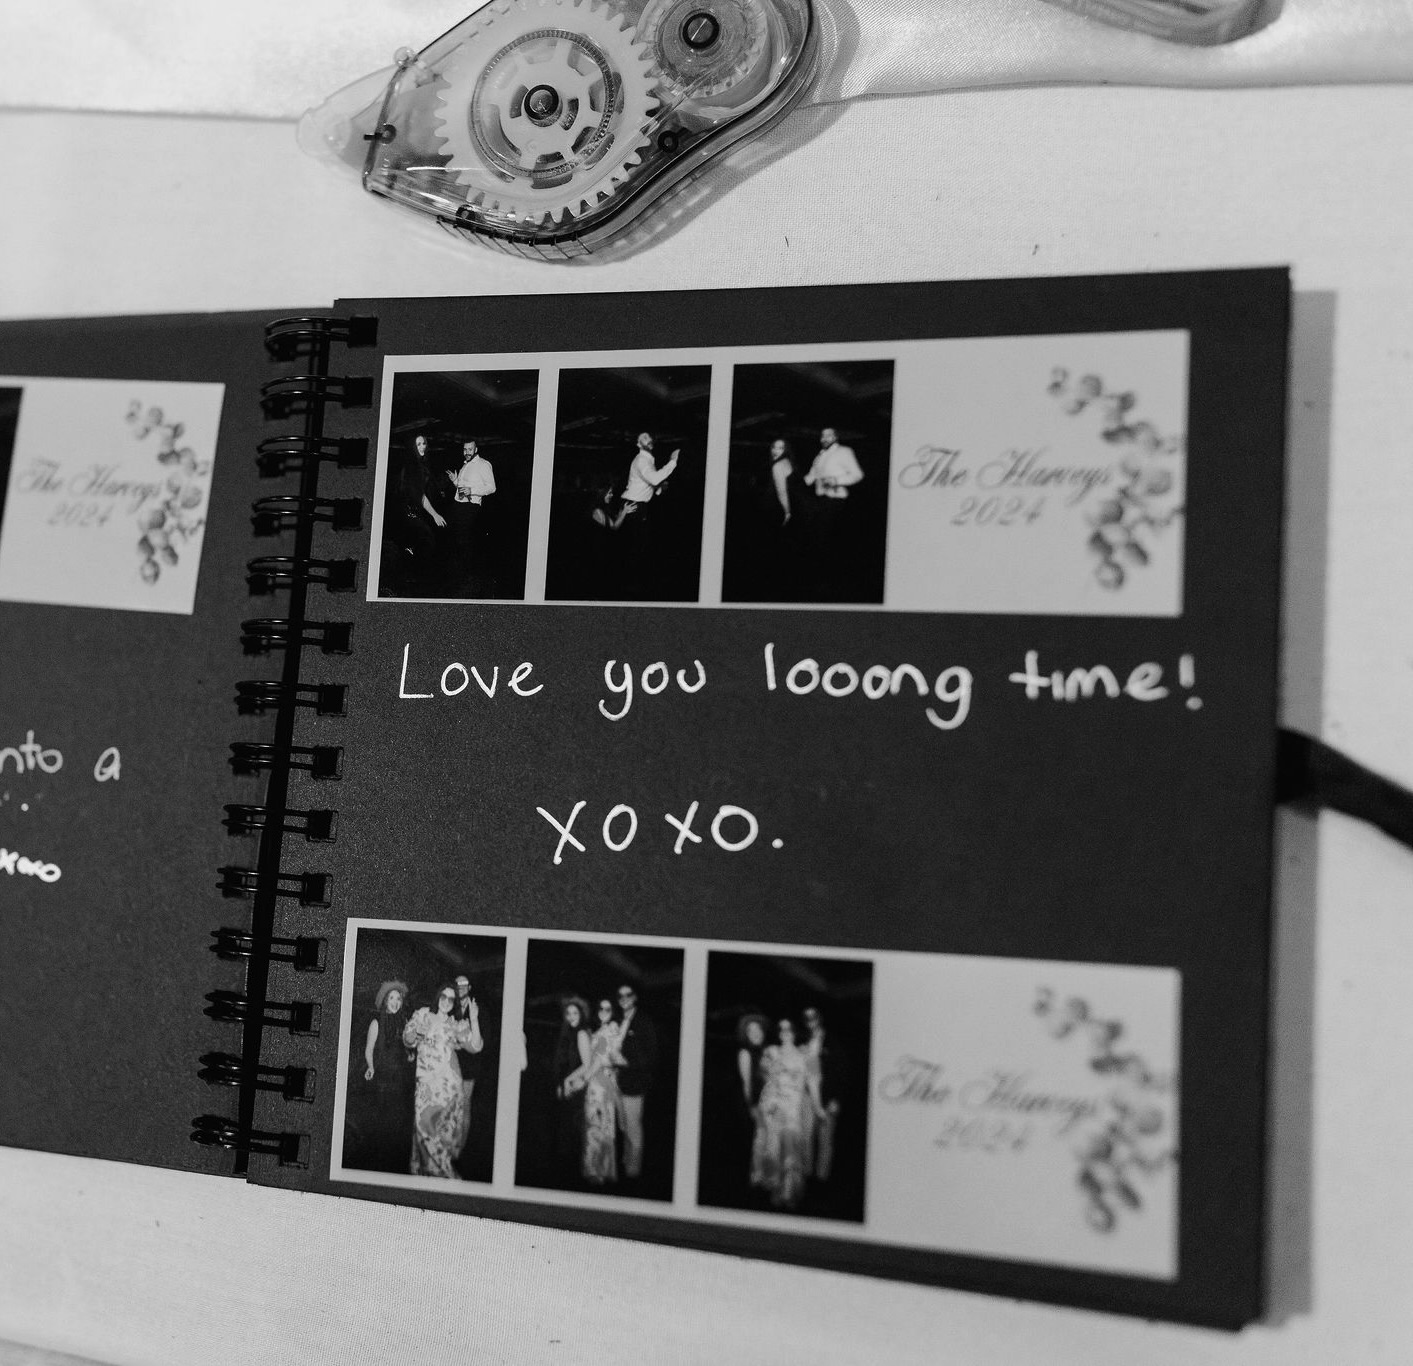 The Harveys
2024
nto a
xoxo
The Harveys
2024
Love you looong time!
xoxo.
The Harveys
2024